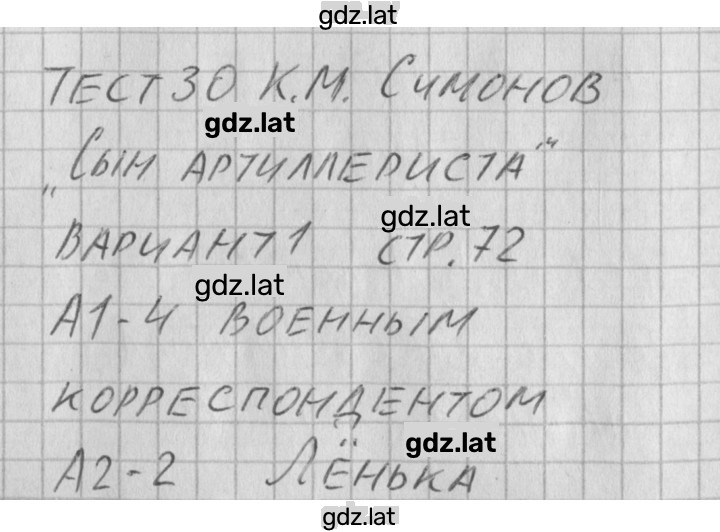 gdz.lat
ТЕСТ 30 К.М. СИМОНОВ
gdz.lat
„СЫН АРТИЛЛЕРИСТА"
gdz.lat
ВАРИАНТ 1 СТР. 72
gdz.lat
А1-4 ВОЕННЫМ
КОРРЕСПОНДЕНТОМ
gdz.lat
А2-2 ЛЁНЬКА
gdz.lat